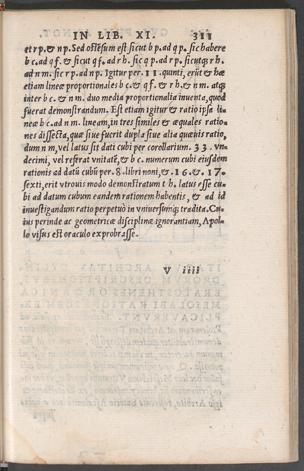 IN LIB. XI. 311
et r p. & n p. Sed ostēsum est sicut b p. ad q p. sic habere
b c. ad q f. & sicut q f. ad r h. sic q p. ad r p. sicutq; r h.
ad n m. sic r p. ad n p. Igitur per. 11. quinti, erūt & hæ
etiam lineæ proportionales b c. & q f. & r h. & n m. atq;
inter b c. & n m. duo media proportionalia inuenta, quod
fuerat demonstrandum. Est etiam igitur & ratio ipsa li-
neæ b c. ad n m. lineam, in tres similes & æquales ratio-
nes dissecta, quæ siue fuerit dupla siue alia quæuis ratio,
dum n m, vel latus sit dati cubi per corollarium. 33. vn-
decimi, vel referat vnitatē, & b c. numerum cubi eiusdem
rationis ad datū cubū per 8. libri noni, & .16. & .17.
sexti, erit vtrouis modo demonstratum t h. latus esse cu-
bi ad datum cubum eandem rationem habentis, & ad id
inuestigandum ratio perpetuò in vniuersumq; tradita. Cu-
ius perinde ac geometricæ disciplinæ ignorantiam, Apol-
lo visus est oraculo exprobrasse.
V iiii